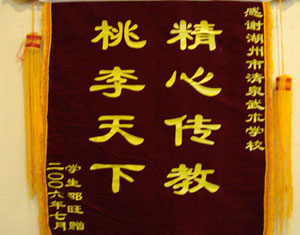 感谢湖州市清泉武术学校
精心传教
桃李天下
学生邓旺赠
二〇〇六年七月